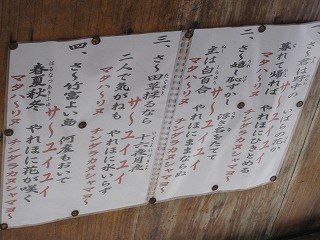 さ～君は野中の
いばらの花か
サ～ユイユイ
暮れて帰れば
やれほにひきとめる
マタハ～リヌ
チンダラカヌシャマヨ～
二、
さ～嬉し恥ずかし
浮き名をたてて
サ～ユイユイ
主は白百合
やれほにままならぬ
マタハ～リヌ
チンダラカヌシャマヨ～
三、
さ～田草採るなら
十六夜月夜
サ～ユイユイ
二人で気がねも
やれほに水いらず
マタハ～リヌ
チンダラカヌシャマヨ～
四、
さ～竹富よい島
何度もおいで
サ～ユイユイ
はるなつあきふゆ
春夏秋冬
やれほに花が咲く
マタハ～リヌ
チンダラカヌシャマヨ～